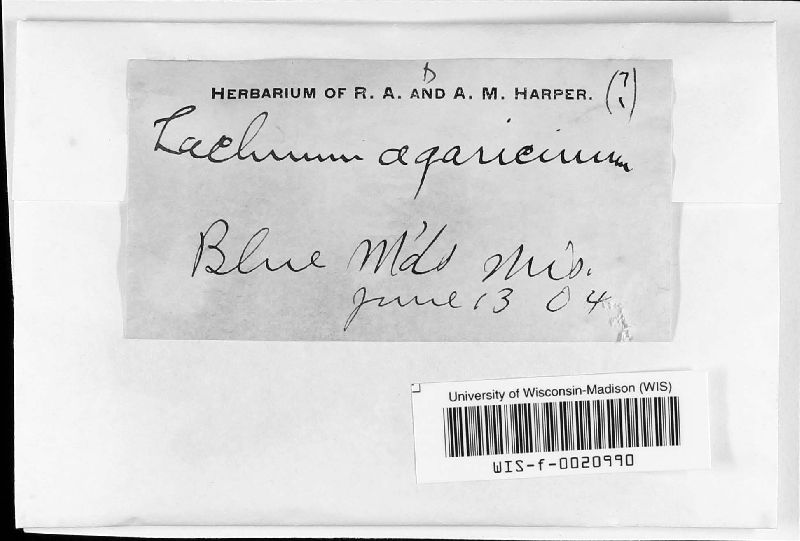 HERBARIUM OF R. A. AND A. M. HARPER. (?)
Lachnum agaricinum
Blue M'ds Wis.
June 13 04
University of Wisconsin-Madison (WIS)
WIS-f-0020990